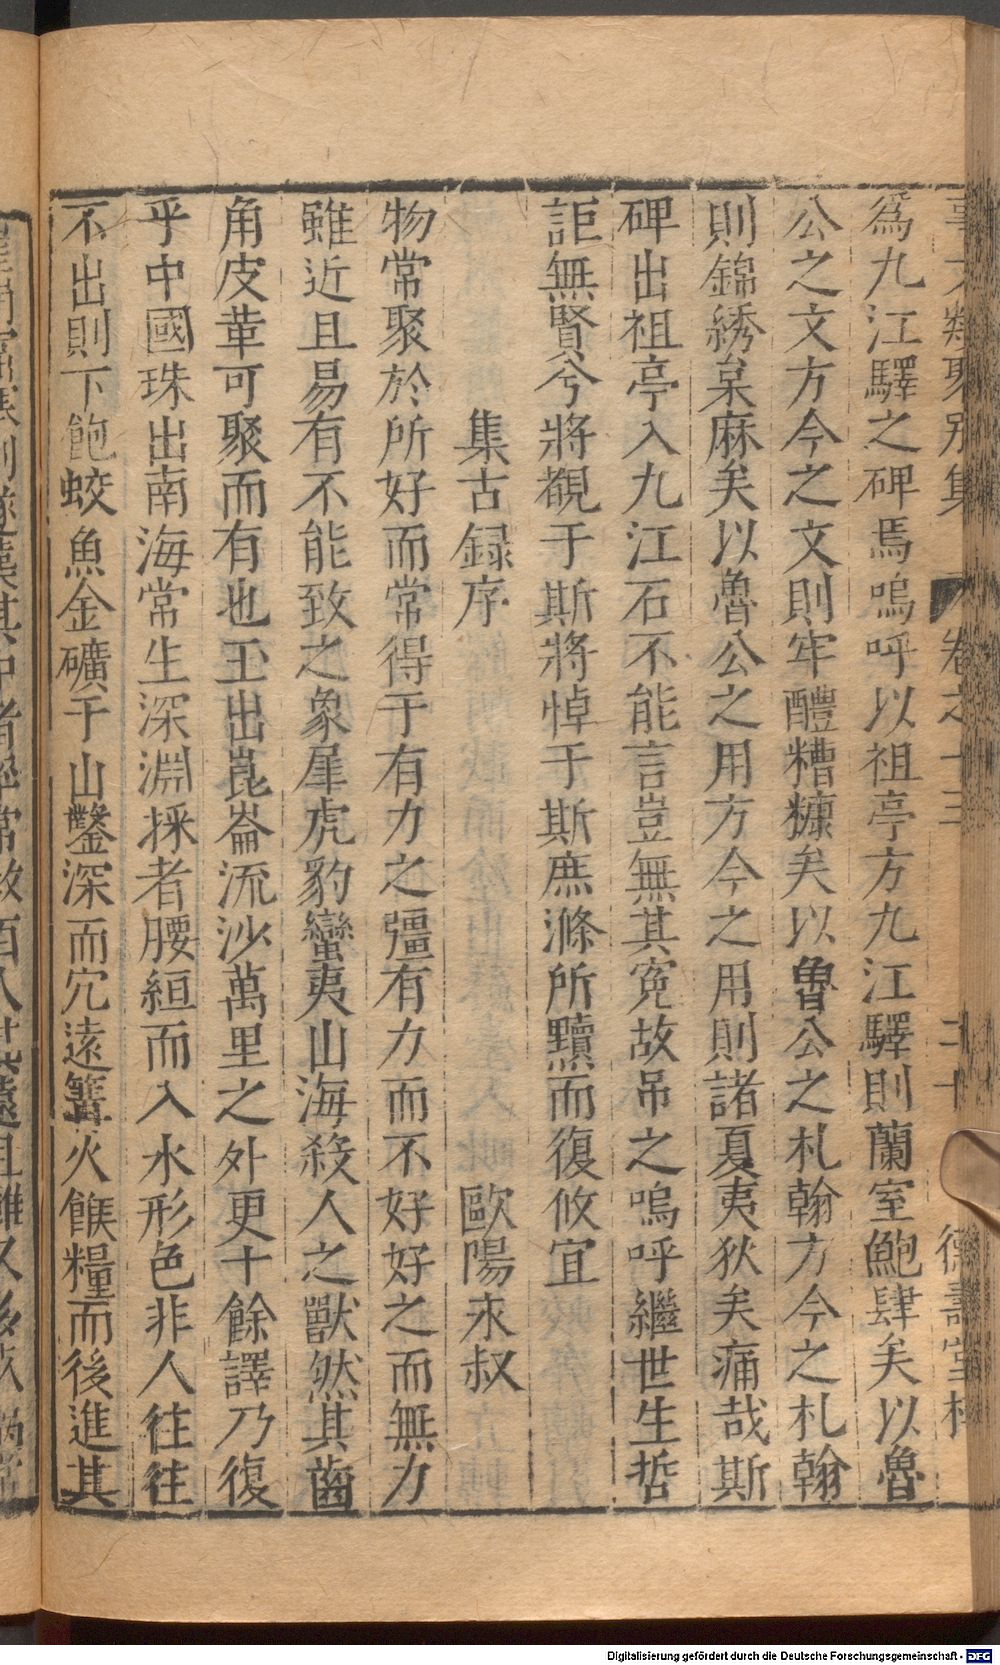 事文類聚別集 卷之十三 二十 德壽堂梓
爲九江驛之碑焉嗚呼以祖亭方九江驛則蘭室鮑肆矣以魯
公之文方今之文則牢醴糟糠矣以魯公之札翰方今之札翰
則錦綉枲麻矣以魯公之用方今之用則諸夏夷狄矣痛哉斯
碑出祖亭入九江石不能言豈無其冤故吊之嗚呼繼世生哲
詎無賢兮將覩于斯將悼于斯庶滌所黷而復攸宜
集古録序 歐陽永叔
物常聚於所好而常得于有力之彊有力而不好好之而無力
雖近且易有不能致之象犀虎豹蠻夷山海殺人之獸然其齒
角皮革可聚而有也玉出崑崙流沙萬里之外更十餘譯乃復
乎中國珠出南海常生深淵採者腰絙而入水形色非人往往
不出則下飽蛟魚金礦于山鑿深而穴遠篝火餱糧而後進其
Digitalisierung gefördert durch die Deutsche Forschungsgemeinschaft - DFG